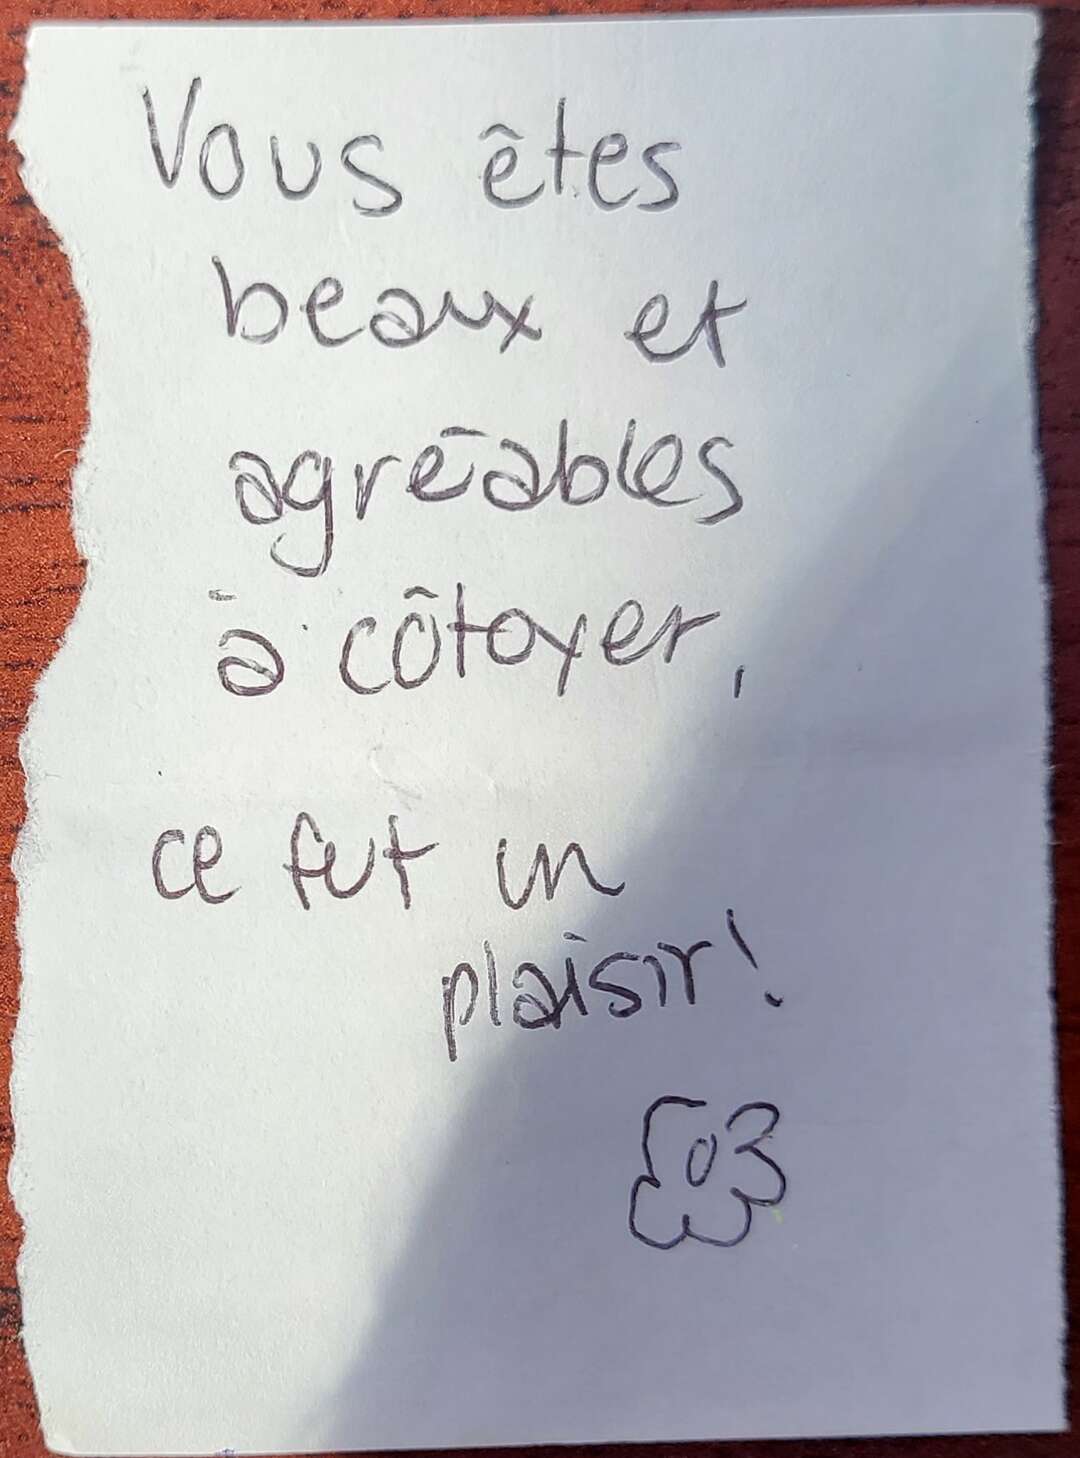 Vous êtes
beaux et
agréables
à côtoyer,
ce fut un
plaisir!